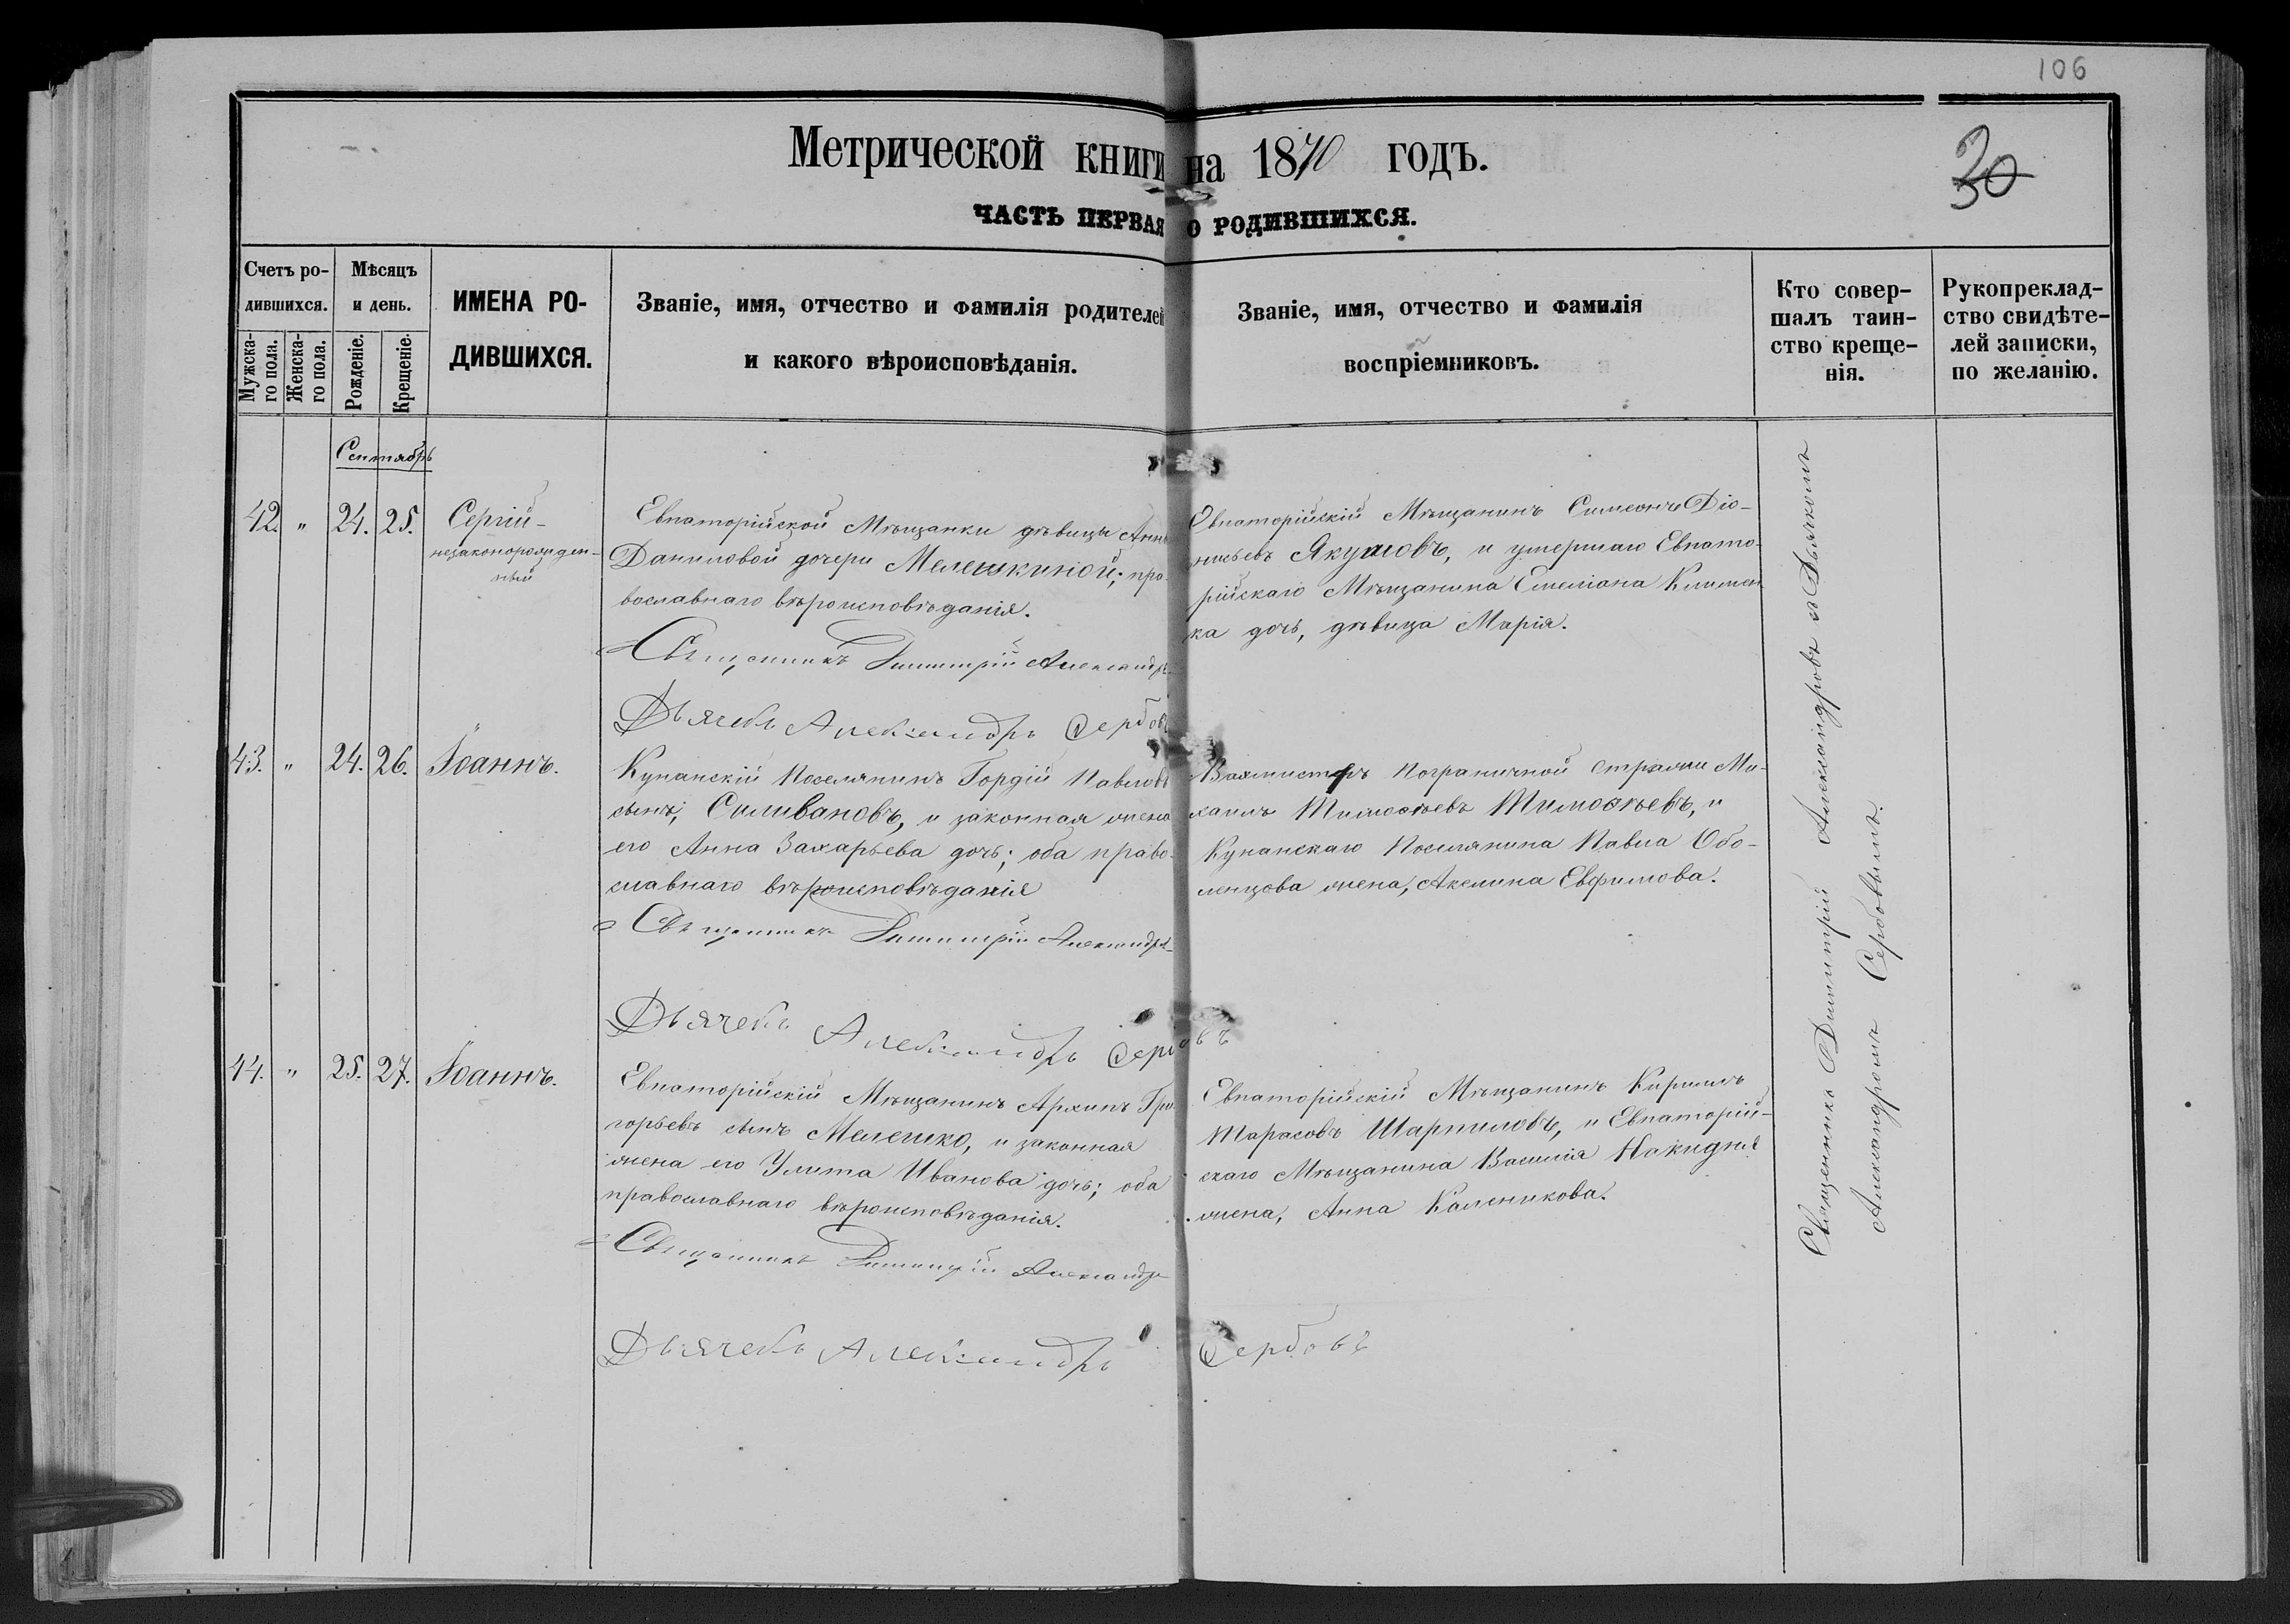 106
30
Метрической книги на 1870 годъ.
ЧАСТЬ ПЕРВАЯ О РОДИВШИХСЯ.
Счетъ ро-
дившихся.
Мужска-
го пола.
Женска-
го пола.
Мѣсяцъ
и день.
Рожденіе.
Крещеніе.
ИМЕНА РО-
ДИВШИХСЯ.
Званіе, имя, отчество и фамилія родителей
и какого вѣроисповѣданія.
Званіе, имя, отчество и фамилія
воспріемниковъ.
Кто совер-
шалъ таин-
ство креще-
нія.
Рукопреклад-
ство свидѣте-
лей записки,
по желанію.
Сентябрь
42. " 24. 25.
Сергій-
незаконорожден-
ный
Евпаторійской Мѣщанки дѣвицы Анны
Даниловой дочери Мелешкиной; пра-
вославнаго вѣроисповѣданія.
Священникъ Димитрій Александр
Дьячекъ Александръ Сербовъ
Евпаторійскій Мѣщанинъ Симеонъ Діо-
нисьевъ Якушовъ, и умершаго Евпато-
рійскаго Мѣщанина Емеліана Климен-
ка дочь, дѣвица Марія.
43. " 24. 26.
Іоаннъ.
Купанскій Поселянинъ Гордій Павловъ
сынъ, Силивановъ, и законная жена
его Анна Захарьева дочь; оба право-
славнаго вѣроисповѣданія
Священникъ Димитрій Александр
Дьячекъ Александръ Сербовъ
Вахмистръ Пограничной стражи Ми-
хаилъ Тимоѳѣевъ Тимоѳѣевъ, и
Купанскаго Поселянина Павла Обо-
ленцова жена, Акелина Евфимова.
44. " 25. 27.
Іоаннъ.
Евпаторійскій Мѣщанинъ Архипъ Гри-
горьевъ сынъ Мелешко, и законная
жена его Улита Иванова дочь; оба
православнаго вѣроисповѣданія.
Священникъ Димитрій Александр
Дьячекъ Александръ Сербовъ
Евпаторійскій Мѣщанинъ Кирилъ
Тарасовъ Шарпиловъ, и Евпаторій-
скаго Мѣщанина Василія
жена, Анна Каленикова.
Священникъ Димитрій Александровъ съ Дьячкомъ
Александромъ Сербовымъ.